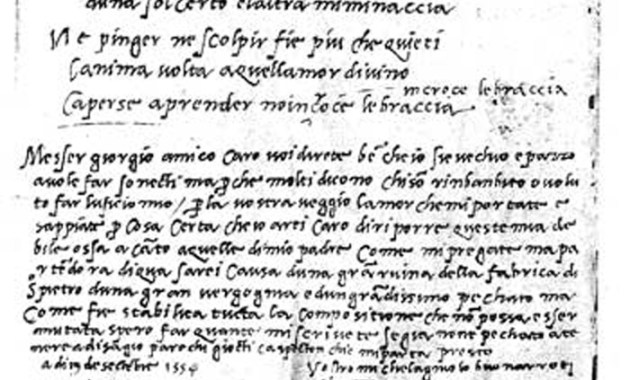 duna so l certo e laltra mi minaccia
Ne pinger ne scolpir fie piu che quieti
lanima volta a quellamor divino
in croce le braccia
caperse a prender noi in croce le braccia
Messer giorgio amico caro voi direte bē che io sie vechio e pazzo
a vole far sonecti ma p che molti dicono chi sō rinbanbito o volu
to far luficio mio / p la vostra veggio lamor che mi portate e
sappiate p cosa certa che io arei caro di riporre queste mia de
bile ossa a cāto a quelle di mio padre come mi pregate ma pa
rtēdo ra di qua sarei causa duna grā ruina della fabrica di
s pietro duna gran vergognia e dun grādissimo pechato ma
come fie stabilita tucta la compositione che nō possa esser
mutata spero far quante mi scrivete se gia none pechato a te
nere a disagio parechi giocti caspecton chi mi parta presto
a di 19 di sectēbre 1554 Vostro michelagniolo buonarroti